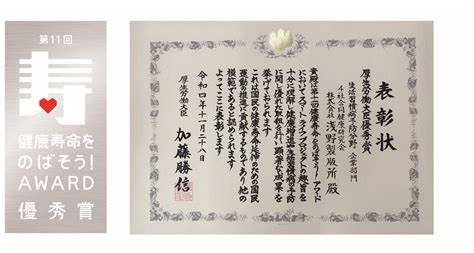 第11回
寿
健康寿命を
のばそう!
AWARD
優秀賞
表彰状
厚生労働大臣優秀賞
生活習慣病予防分野・企業部門
株式会社 浅野製版所 殿
貴殿は第十一回健康寿命をのばそう!アワード
においてスマート・ライフ・プロジェクトの趣旨を
十分に理解し健康増進・生活習慣病の予防
取組を行い顕著な成果を
挙げておられます
これは国民の健康寿命延伸のための国民
運動の推進に貢献するものであり他の
模範であると認められます
よってここに表彰します
令和四年十一月二十八日
厚生労働大臣 加藤勝信